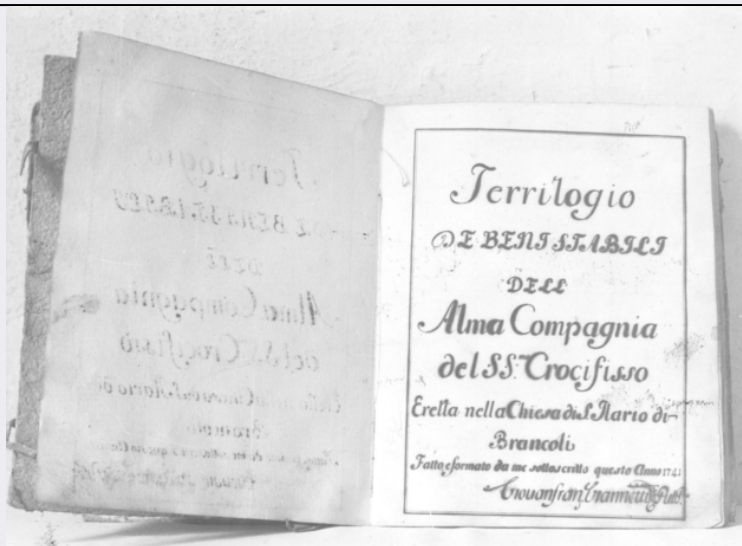 Terrilogio
DE BENI STABILI
DELL
Alma Compagnia
del SS.mo Crocifisso
Eretta nella Chiesa di S. Ilario di
Brancoli
Fatto e formato da me sottoscritto questo Anno 1741